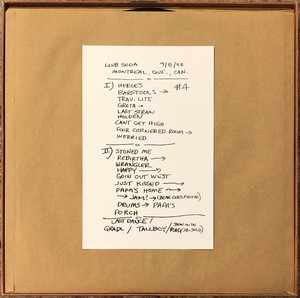 CLUB SODA 7/8/92
MONTREAL, QUE., CAN.
I) HEROES #4
BARSTOOLS →
TRAV. LITE
GRETA →
LAST STRAW
HOLDEN
CANT GET HIGH
FOUR CORNERED ROOM →
WORRIED
II) STONED ME
REBIRTHA →
WRANGLER
HAPPY →
GOIN OUT WEST
JUST KISSED →
PAPA'S HOME →
→ JAM! →
DRUMS → PAPA'S
PORCH
LAST DANCE /
GRADL / TALLBOY /